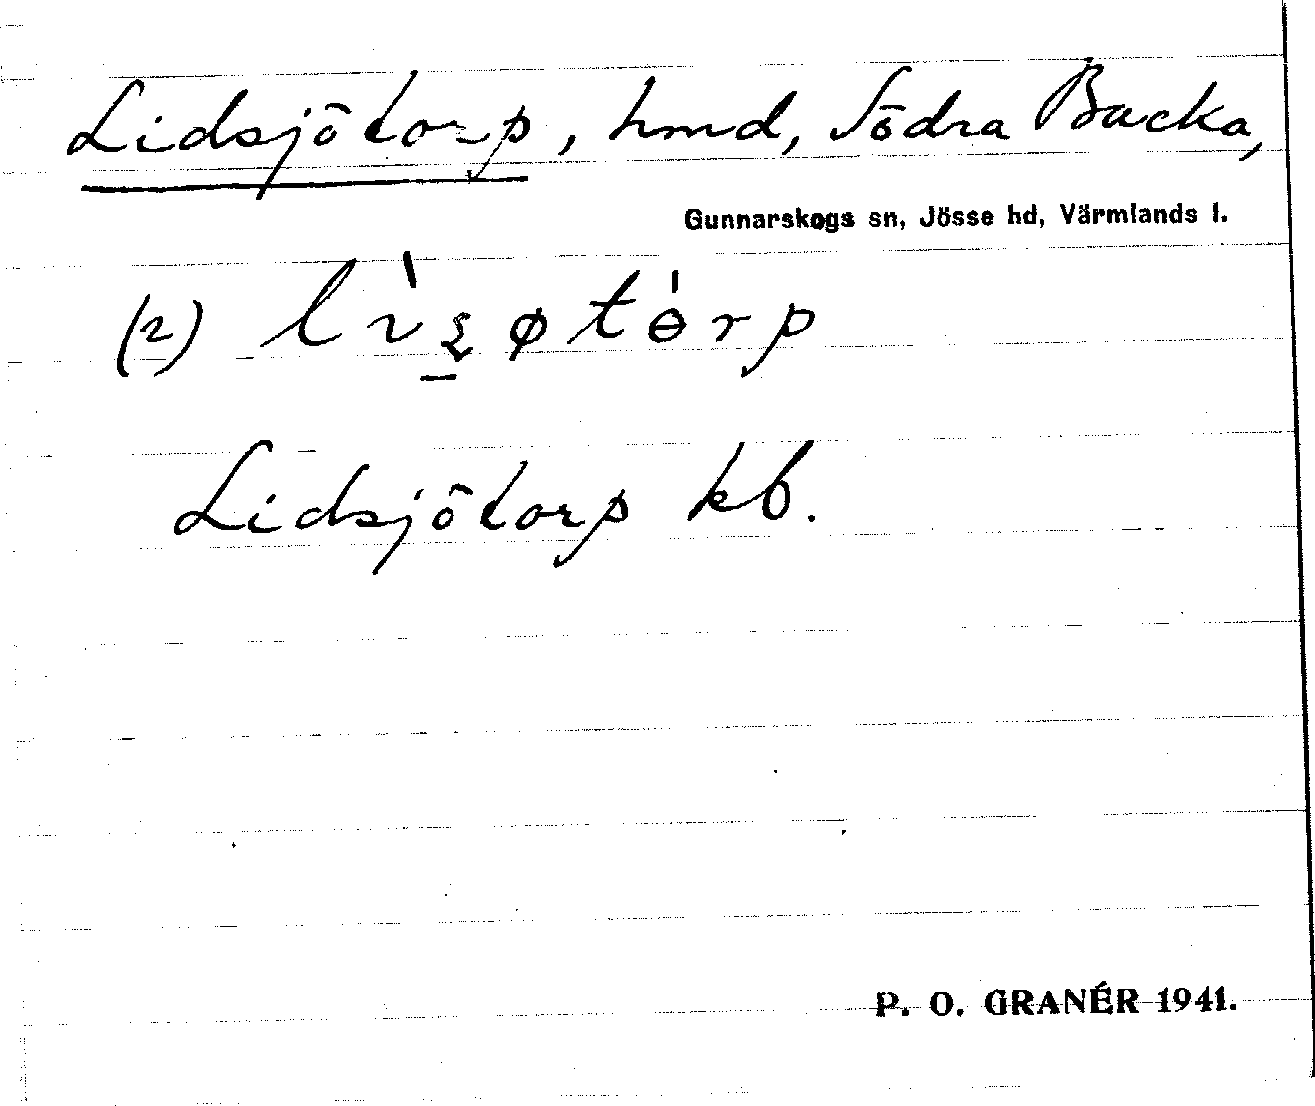 Lidsjötorp, hmd, Södra Backa,
Gunnarskogs sn, Jösse hd, Värmlands l.
(2)
Lidsjötorp kb.
P. O. GRANÉR 1941.